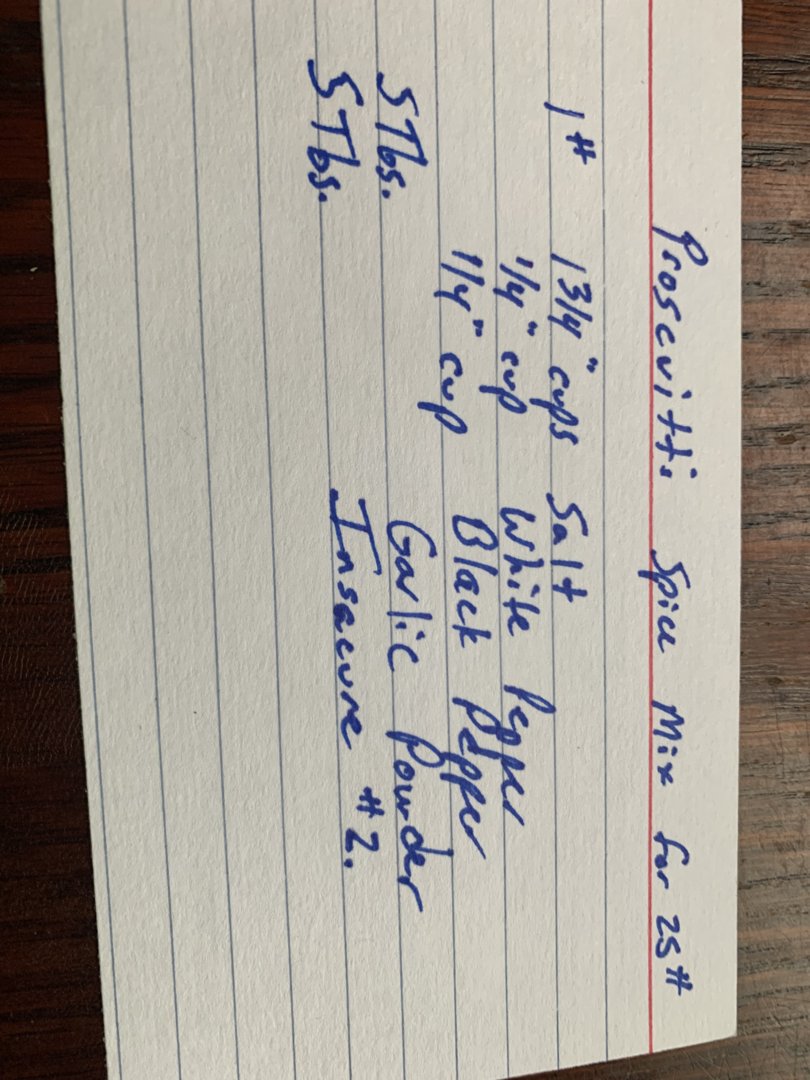 Proscuitti Spice Mix for 25#
1# 1 3/4" cups Salt
1/4" cup White Pepper
1/4" cup Black Pepper
5 Tbs. Garlic Powder
5 Tbs. Insacure #2.